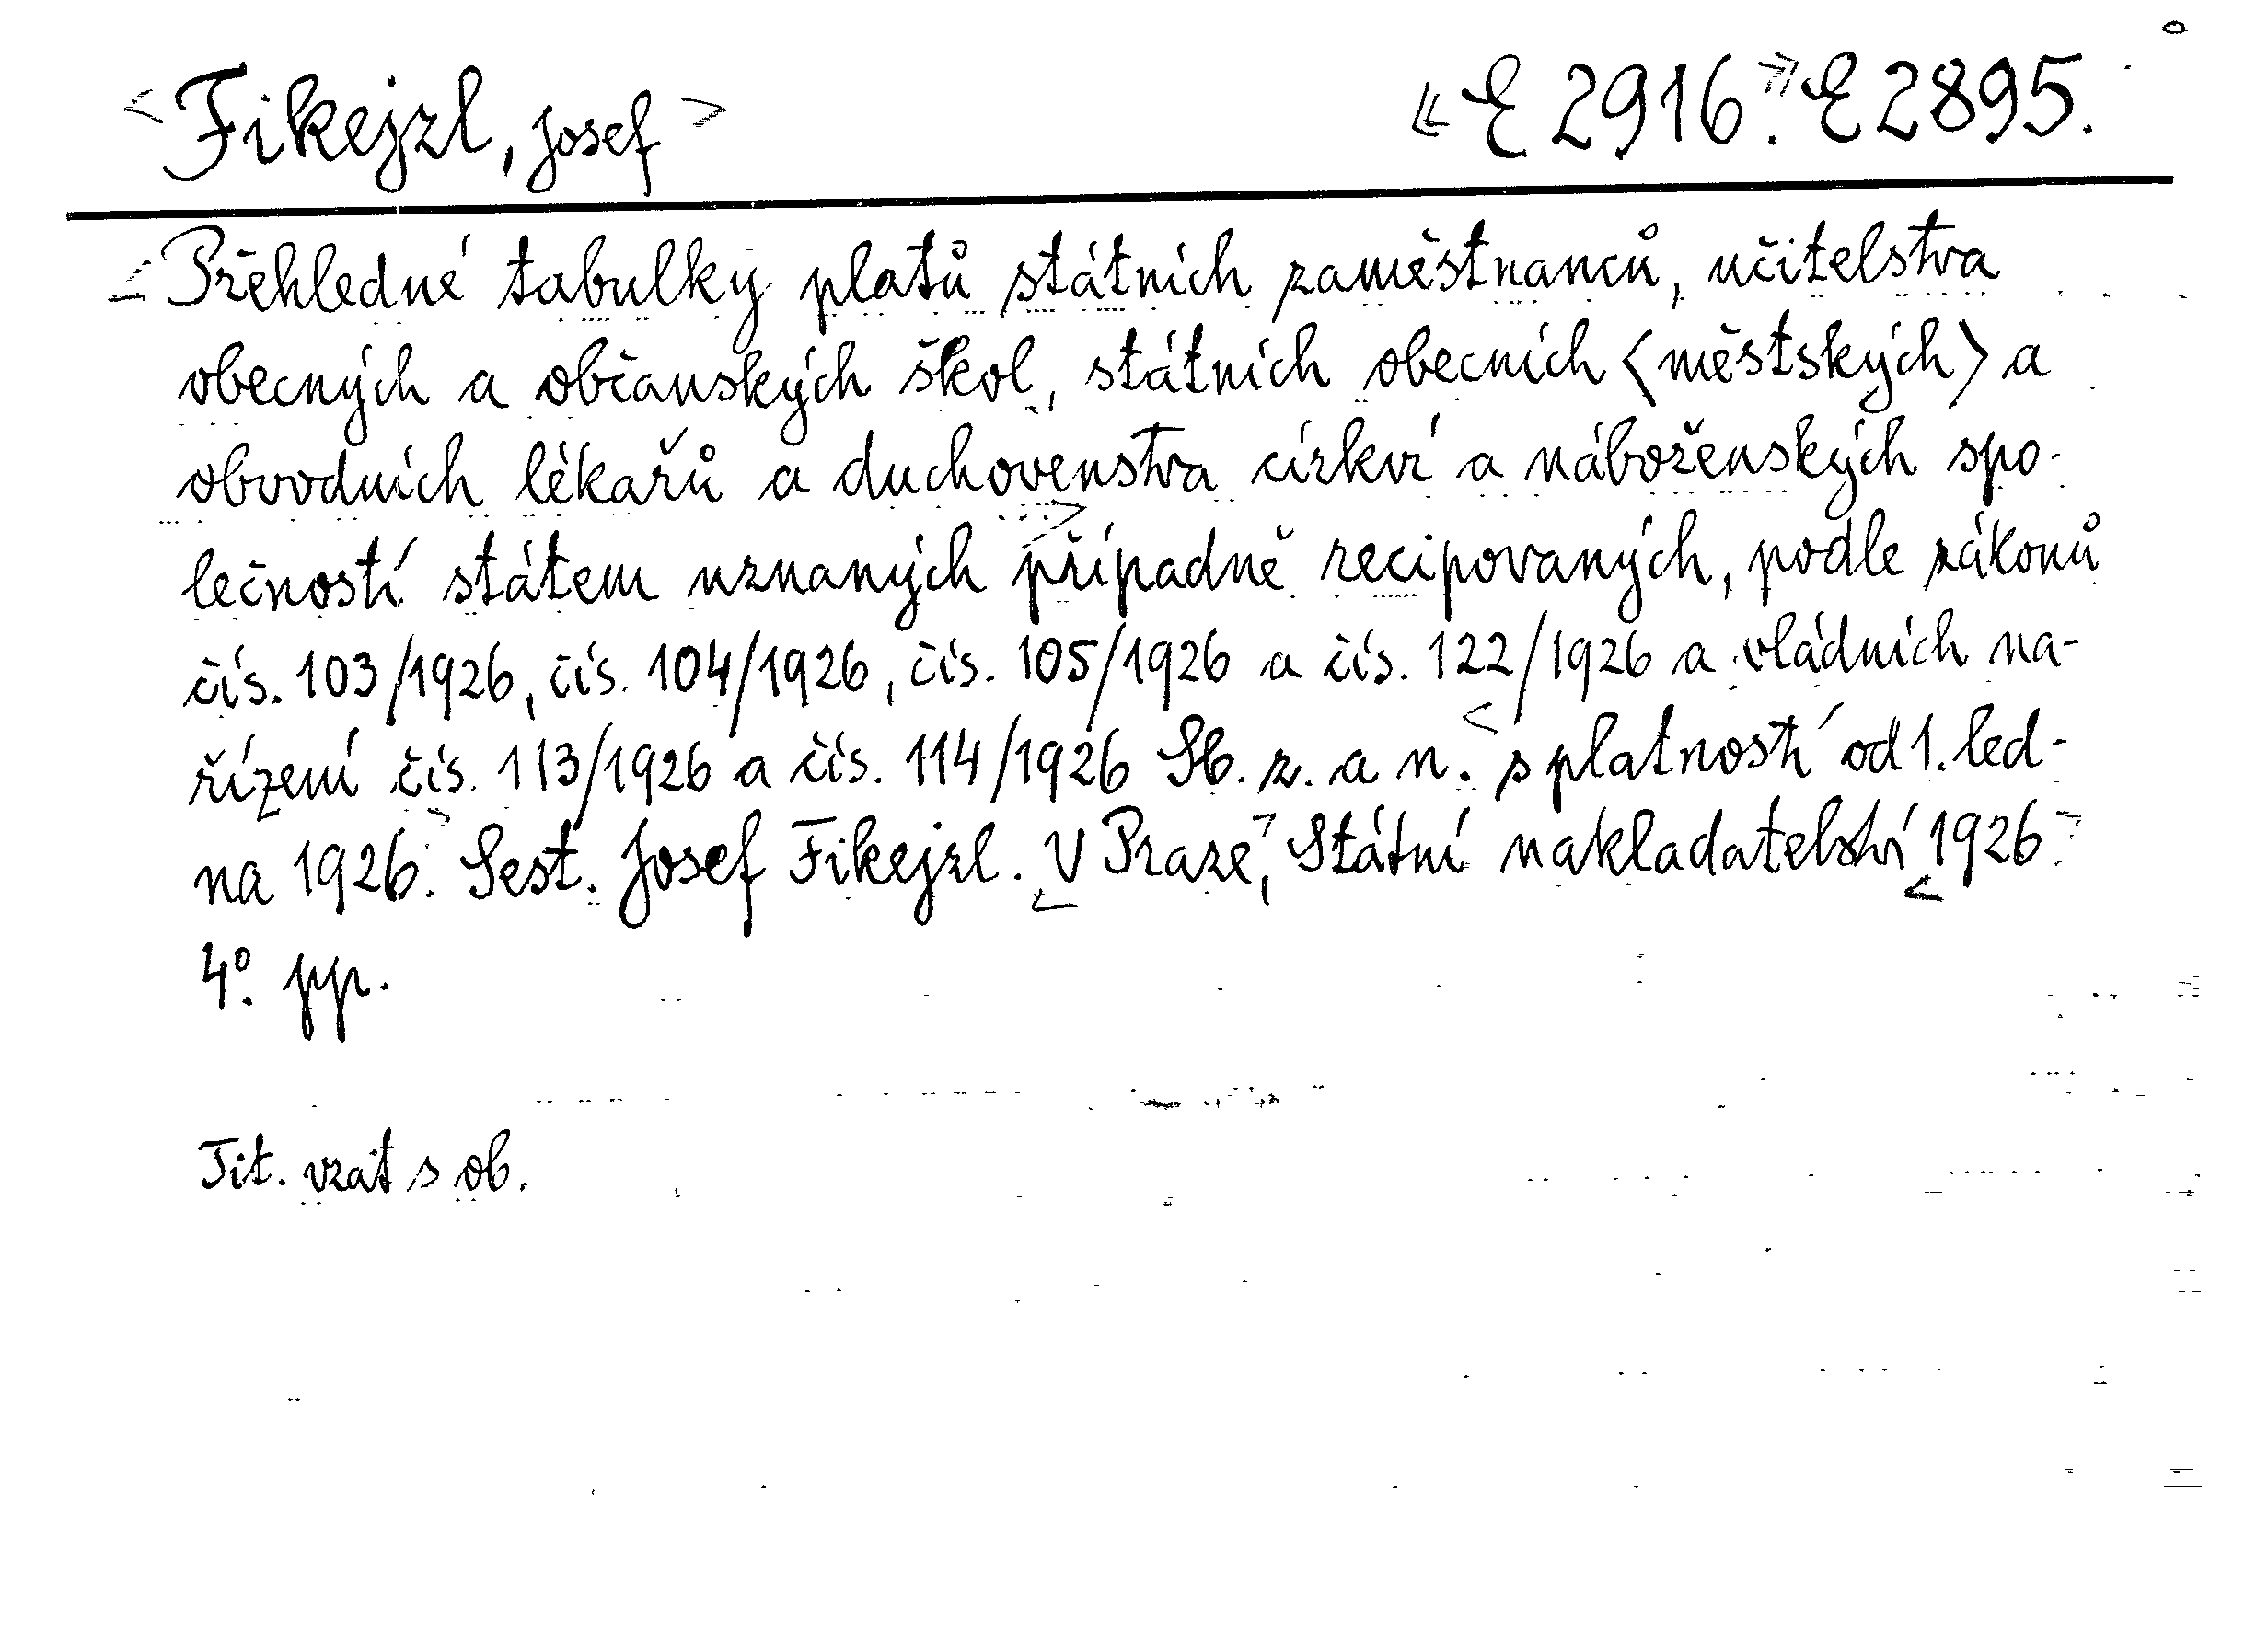 <Fikejzl, Josef> «E 2916.» E 2895.
<Přehledné tabulky platů státních zaměstnanců, učitelstva
obecných a občanských škol, státních obecních <městských> a
obvodních lékařů a duchovenstva církví a náboženských spo-
lečností státem uznaných> případně recipovaných, podle zákonů
čís. 103/1926, čís. 104/1926, čís. 105/1926 a čís. 122/1926 a vládních na-
řízení čís. 113/1926 a čís. 114/1926 Sb. z. a n. <s platností od 1. led-
na 1926.> Sest. Josef Fikejzl. <V Praze>, Státní nakladatelství <1926.>
4°. pp.
Tit. vzat s ob.